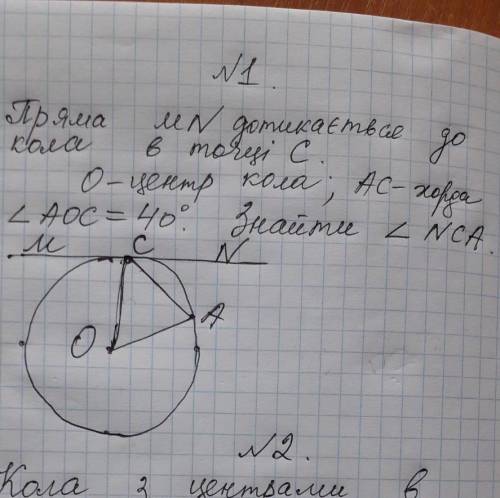 №1.
Пряма MN дотикається до
кола в точці C.
O-центр кола; AC-хорда
∠AOC=40°. Знайти ∠NCA.
M C N
A
O
№2.
Кола з центрами в